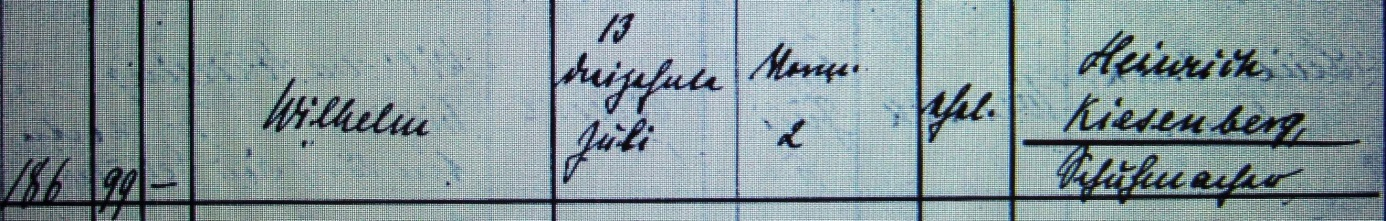 186 99 — Wilhelm
13
dreizehnte
Juli
Morg.
2
ehel.
Heinrich
Kiesenberg,
Schuhmacher